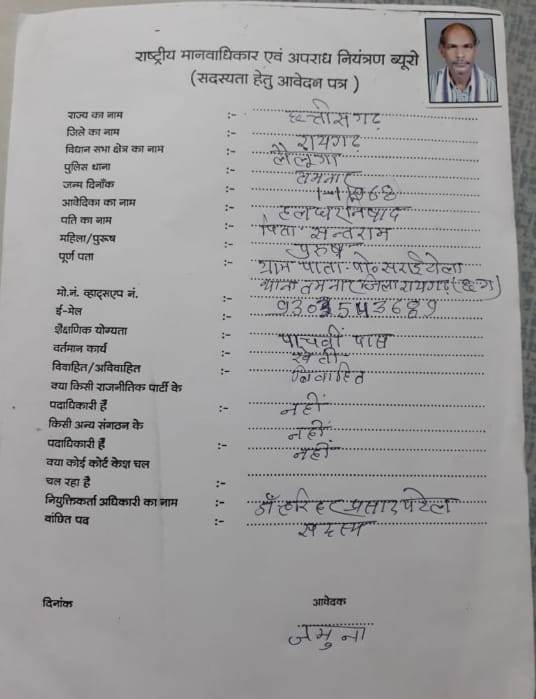 राष्ट्रीय मानवाधिकार एवं अपराध नियंत्रण ब्यूरो
(सदस्यता हेतु आवेदन पत्र )
राज्य का नाम :- छत्तीसगढ़
जिले का नाम :- रायगढ़
विधान सभा क्षेत्र का नाम :- लैलूंगा
पुलिस थाना :- तमनार
जन्म दिनाँक :- 1-1-1968
आवेदिका का नाम :- हलधर निषाद
पति का नाम :- पिता सन्तराम
महिला/पुरूष :- पुरुष
पूर्ण पता :- ग्राम पाता पो॰ सराईटोला
थाना तमनार जिला रायगढ़ (छ ग)
मो.नं. व्हाट्सएप नं. :- 9303543689
ई-मेल :-
शैक्षणिक योग्यता :- पाचवीं पास
वर्तमान कार्य :- खेती
विवाहित/अविवाहित :- विवाहित
क्या किसी राजनीतिक पार्टी के
पदाधिकारी हैं :- नहीं
किसी अन्य संगठन के नहीं
पदाधिकारी हैं :- नहीं
क्या कोई कोर्ट केश चल
चल रहा है :-
नियुक्तिकर्ता अधिकारी का नाम :- डॉ हरिहर प्रसाद पटेल
वांछित पद :- सदस्य
दिनांक आवेदक
जमुना